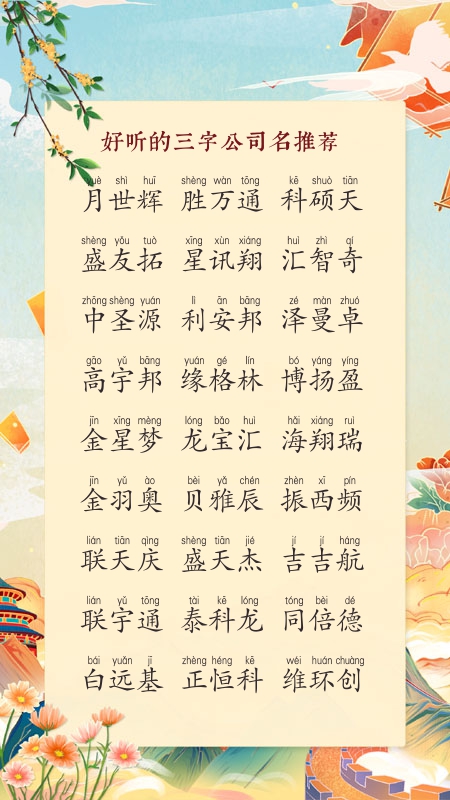 好听的三字公司名推荐
yuè shì huī shèng wàn tōng kē shuò tiān
月世辉 胜万通 科硕天
shèng yǒu tuò xīng xùn xiáng huì zhì qí
盛友拓 星讯翔 汇智奇
zhōng shèng yuán lì ān bāng zé màn zhuó
中圣源 利安邦 泽曼卓
gāo yǔ bāng yuán gé lín bó yáng yíng
高宇邦 缘格林 博扬盈
jīn xīng mèng lóng bǎo huì hǎi xiáng ruì
金星梦 龙宝汇 海翔瑞
jīn yǔ ào bèi yǎ chén zhèn xī pín
金羽奥 贝雅辰 振西频
lián tiān qìng shèng tiān jié jí jí háng
联天庆 盛天杰 吉吉航
lián yǔ tōng tài kē lóng tóng bèi dé
联宇通 泰科龙 同倍德
bái yuǎn jī zhèng héng kē wéi huán chuàng
白远基 正恒科 维环创